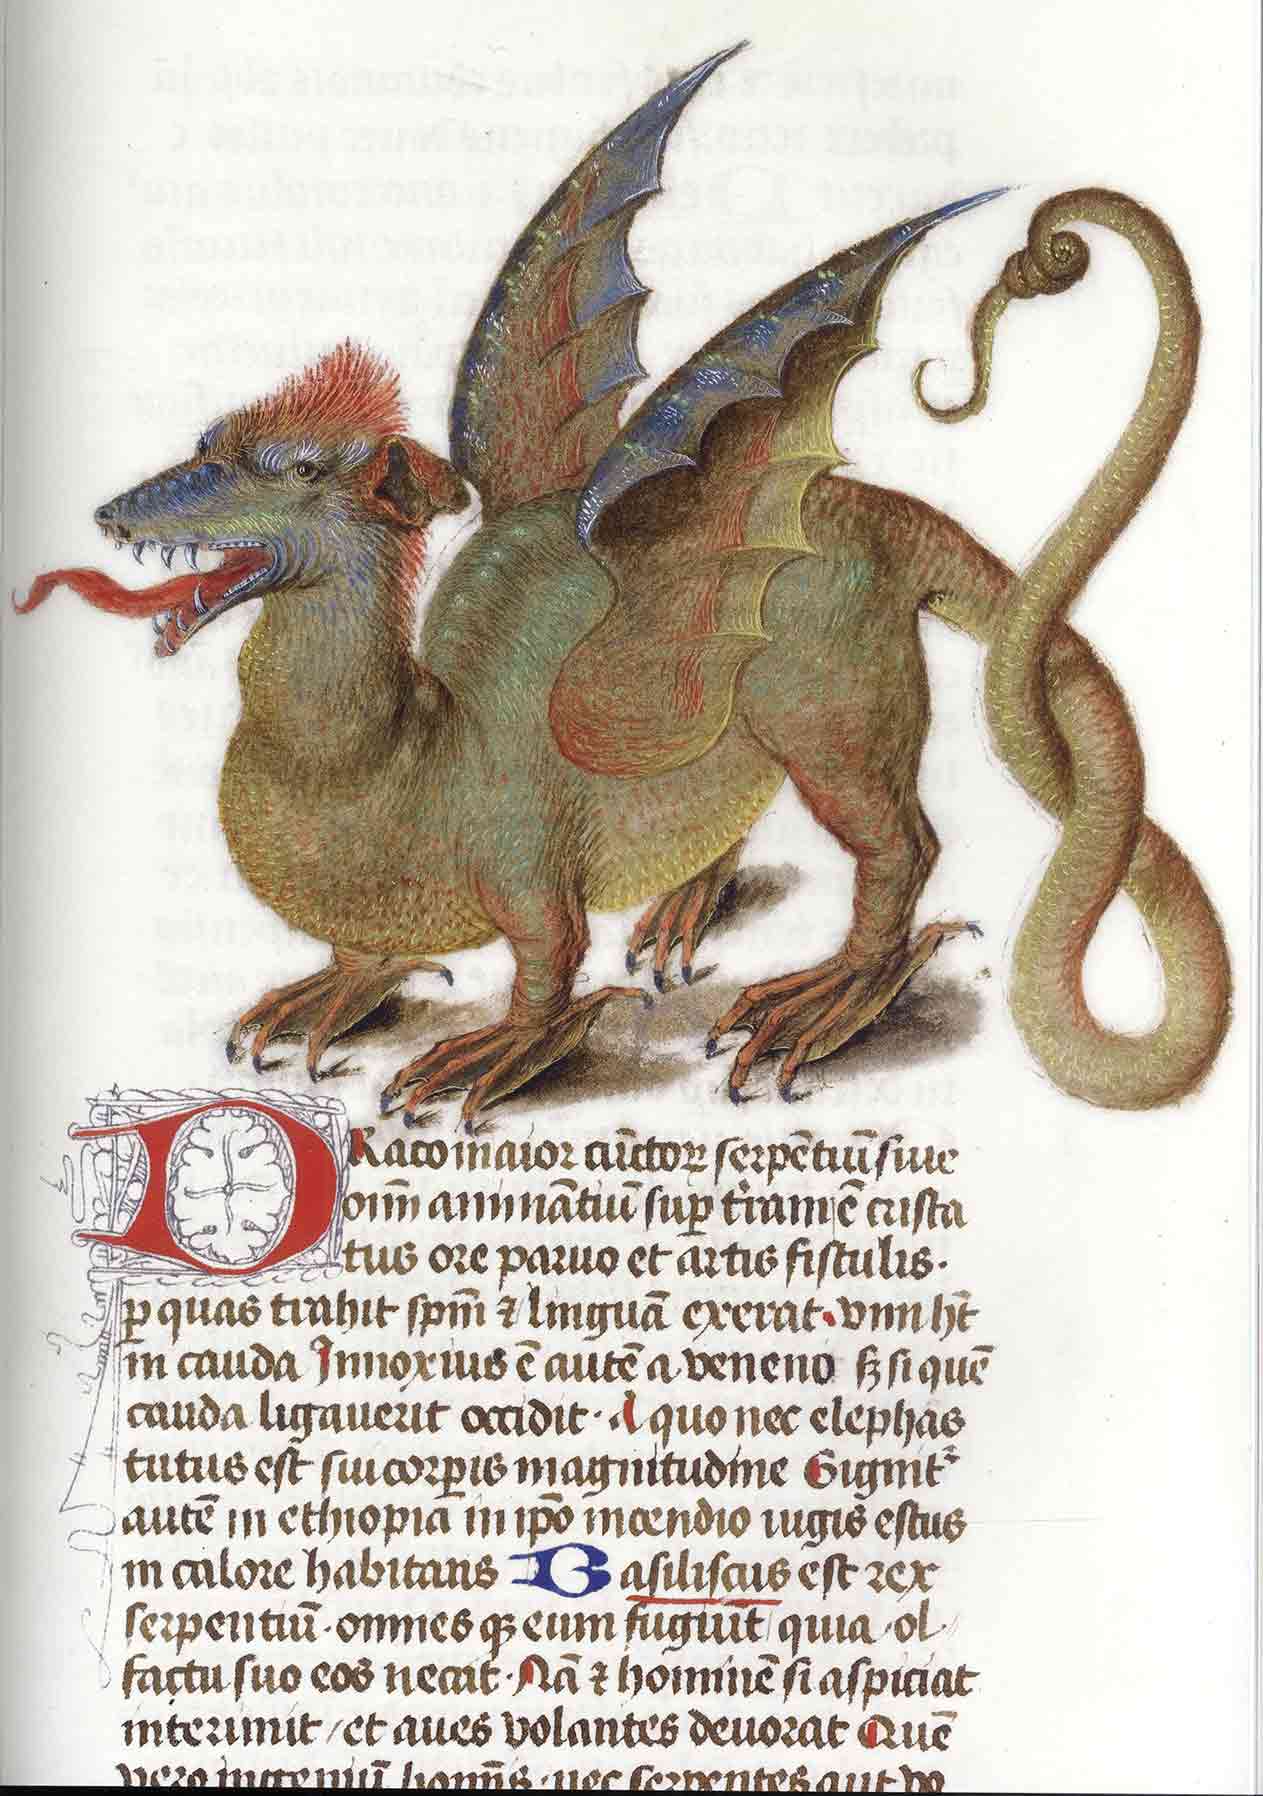 DRaco maior cūctoꝝ serpētiū siue
oīm animātiū sup t̄ram ē crista
tus ore paruo et artis fistulis.
p̲ quas trahit spm̄ ⁊ linguā exerat. vim hꝫ
in cauda Innoxius ē autē a veneno sꝫ si quē
cauda ligauerit occidit. A quo nec elephas
tutus est sui corꝑis magnitudine Gignit᷑
autē in ethiopia in ip̄o incendio iugis estus
in calore habitans Basiliscus est rex
serpentiū. omnes qꝫ eum fugiūt quia ol
factu suo eos necat. Nā ⁊ hominē si aspiciat
interimit / et aues volantes deuorat Quē
vero ingeniū homīs. nec serpentes aut vo